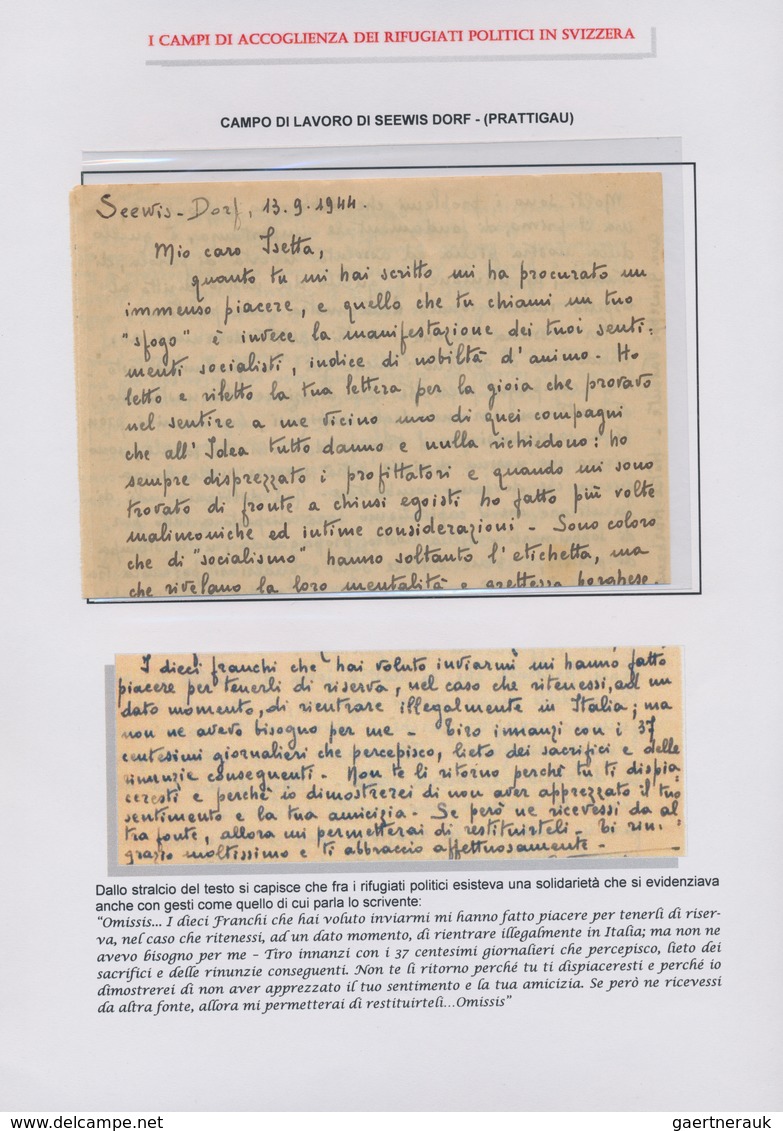 I CAMPI DI ACCOGLIENZA DEI RIFUGIATI POLITICI IN SVIZZERA
CAMPO DI LAVORO DI SEEWIS DORF - (PRATTIGAU)
Seewis-Dorf, 13.9.1944.
Mio caro Isetta,
quanto tu mi hai scritto mi ha procurato un
immenso piacere, e quello che tu chiami un tuo
"sfogo" è invece la manifestazione dei tuoi senti-
menti socialisti, indice di nobiltà d'animo - Ho
letto e riletto la tua lettera per la gioia che provavo
nel sentire a me vicino uno di quei compagni
che all'Idea tutto danno e nulla richiedono: ho
sempre disprezzato i profittatori e quando mi sono
trovato di fronte a chiusi egoisti ho fatto più volte
malinconiche ed intime considerazioni - Sono coloro
che di "socialismo" hanno soltanto l'etichetta, ma
che rivelano la loro mentalità e grettezza borghese.
I dieci franchi che hai voluto inviarmi mi hanno fatto
piacere per tenerli di riserva, nel caso che ritenessi, ad un
dato momento, di rientrare illegalmente in Italia; ma
non ne avevo bisogno per me - Tiro innanzi con i 37
centesimi giornalieri che percepisco, lieto dei sacrifici e delle
rinunzie conseguenti - Non te li ritorno perchè tu ti dispia-
ceresti e perchè io dimostrerei di non aver apprezzato il tuo
sentimento e la tua amicizia - Se però ne ricevessi da al
tra fonte, allora mi permetterai di restituirteli - Ti rin-
grazio moltissimo e ti abbraccio affettuosamente -
Dallo stralcio del testo si capisce che fra i rifugiati politici esisteva una solidarietà che si evidenziava
anche con gesti come quello di cui parla lo scrivente:
"Omissis... I dieci Franchi che hai voluto inviarmi mi hanno fatto piacere per tenerli di riser-
va, nel caso che ritenessi, ad un dato momento, di rientrare illegalmente in Italia; ma non ne
avevo bisogno per me – Tiro innanzi con i 37 centesimi giornalieri che percepisco, lieto dei
sacrifici e delle rinunzie conseguenti. Non te li ritorno perché tu ti dispiaceresti e perché io
dimostrerei di non aver apprezzato il tuo sentimento e la tua amicizia. Se però ne ricevessi
da altra fonte, allora mi permetterai di restituirteli...Omissis"
www.delcampe.net
gaertnerauk